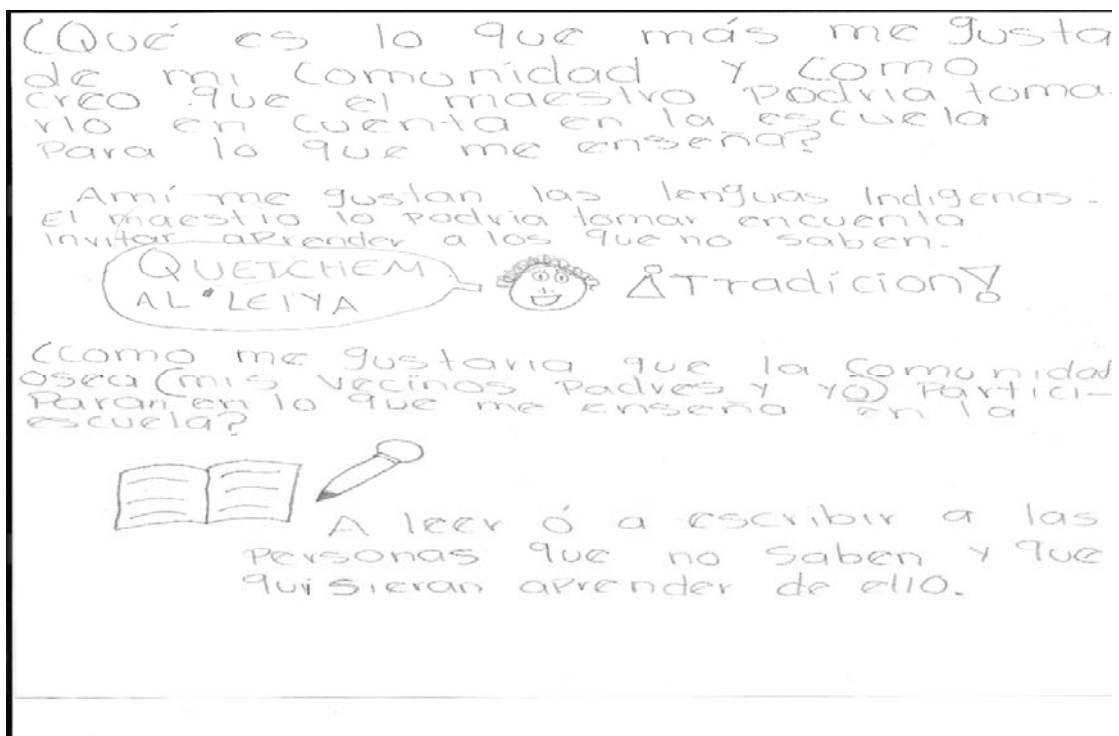 ¿Qué es lo que más me gusta
de mi comunidad y como
creo que el maestro podria toma-
rlo en cuenta en la escuela
para lo que me enseña?
Amí me gustan las lenguas Indigenas.
El maestro lo podria tomar encuenta
invitar aprender a los que no saben.
QUETCHEM
AL LEIYA
¡Tradícion!
¿como me gustaria que la comunidad
osea (mis vecinos padres y yo) partici-
paran en lo que me enseña en la
escuela?
A leer ó a escribir a las
personas que no saben y que
quisieran aprender de ello.